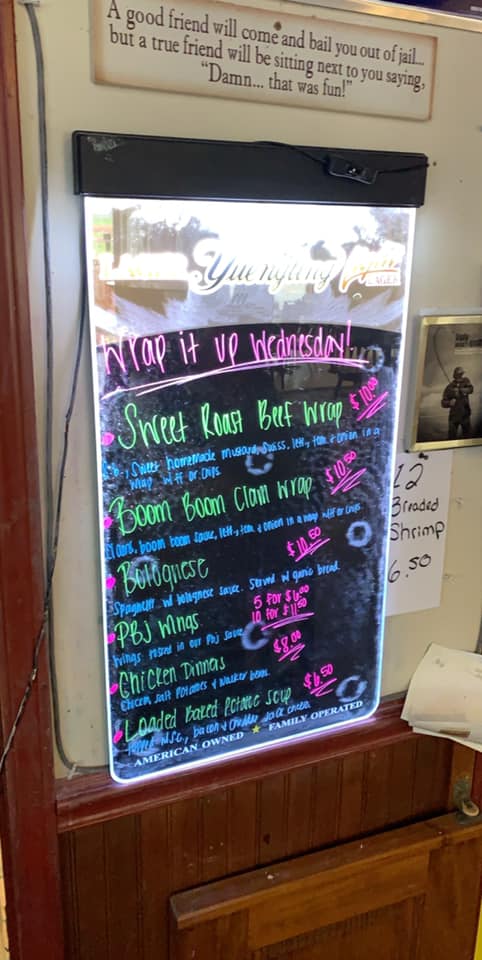 A good friend will come and bail you out of jail...
but a true friend will be sitting next to you saying,
"Damn... that was fun!"
Yuengling
LAGER
Wrap it up Wednesday!
Sweet Roast Beef Wrap $10.00
Sweet homemade mustard, Swiss, lett, tom & onion in a
wrap w/ ff or chips
Boom Boom Clam Wrap $10.50
Clams, boom boom sauce, lett, tom & onion in a wrap w/ff or chips
Bolognese $10.50
Spaghetti w/ bolognese sauce. Served w/ garlic bread
PBJ Wings 5 for $6.00
10 for $11.50
Wings tossed in our PBJ sauce
Chicken Dinners $8.00
Chicken, salt potatoes &
Loaded Baked Potatoe Soup $6.50
bacon & cheddar jack cheese
AMERICAN OWNED ★ FAMILY OPERATED
12
Breaded
Shrimp
6.50